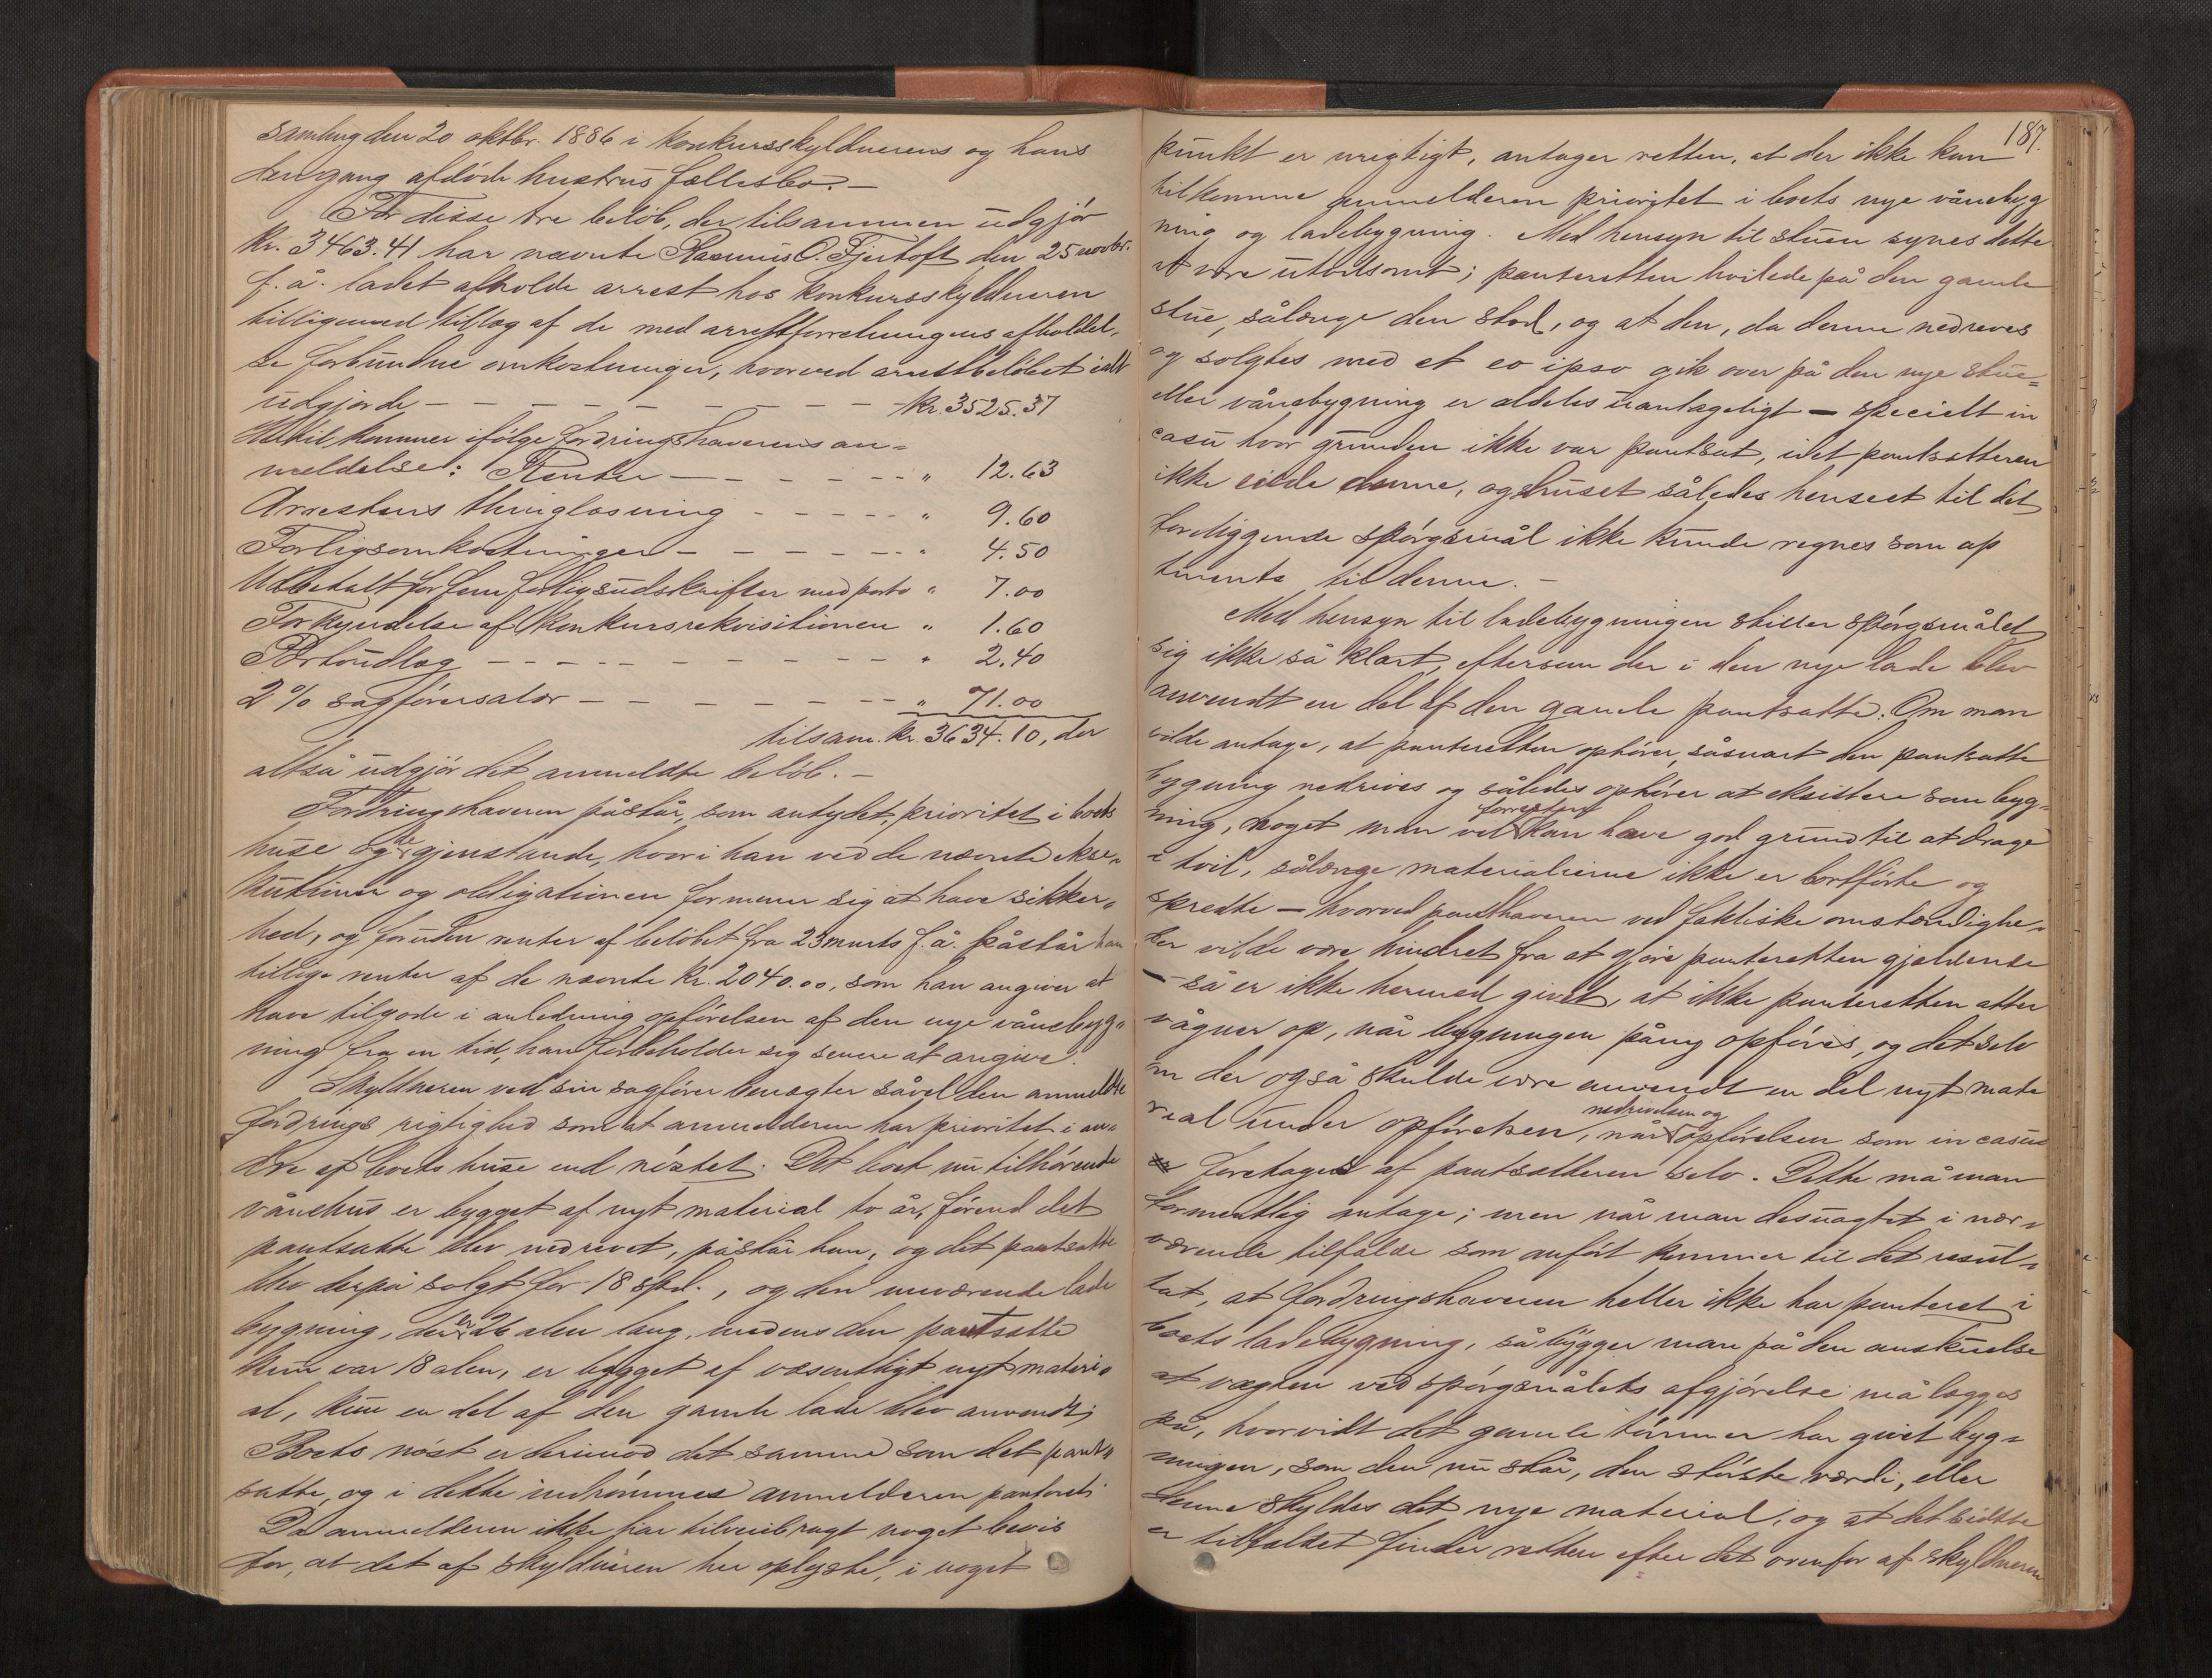 samling den 20 oktbr. 1886 i konkursskyldnerens og hans
dengang afdöde hustrus fællesbo. –
For disse tre belöb, der tilsammen udgjör
kr. 3463.41 har nævnte Rasmus O. Fjertoft den 25 novbr.
f. å. ladet afholde arrest hos konkursskyldneren
tilligemed tillæg af de med arrestforretningens afholdel-
se forbundne omkostninger, hvorved arrestbelöbet ialt
udgjorde – – – – – – – – kr. 3525.37
Hertil kommer ifölge fordringshaverens an-
meldelse: Renter – – – – – – " 12.63
Arrestens thinglæsning – – – – – " 9.60
Forligsomkostninger – – – – – – " 4.50
Udbetalt for fem forligsudskrifter med porto " 7.00
Forkyndelse af konkursrekvisitionen " 1.60
Portoudlæg – – – – – – – – – " 2.40
2 % sagförersalær – – – – – – – " 71.00
tilsam. kr. 3634.10, der
altså udgjör det anmeldte belöb. –
Fordringshaveren påstår, som antydet, prioritet i boets
huse og de gjenstande, hvori han ved de nævnte ekse-
kutioner og obligationen formener sig at have sikker-
hed, og foruden renter af belöbet fra 23 marts f. å. påstår han
tillige renter af de nævnte kr. 2040.00, som han angiver at
have tilgode i anledning opförelsen af den nye vånebyg-
ning fra en tid, han forbeholder sig senere at angive.
Skyldneren ved sin sagförer benægter såvel den anmeldte
fordrings rigtighed som at anmelderen har prioritet i an-
dre af boets huse end nöstet. Det boet nu tilhörende
vånehus er bygget af nyt material to år, förend det
pantsatte blev nedrevet, påstår han, og det pantsatte
blev derpå solgt for 18 spd., og den nuværende lade
bygning, der er 26 alen lang, medens den pantsatte
kun var 18 alen, er bygget af væsentligt nyt materi-
al, kun en del af den gamle lade blev anvendt;
Boets nöst er derimod det samme som det pant-
satte, og i dette indrömmes anmelderen panteret.
Da anmelderen ikke har tilveiebragt noget bevis
for, at det af skyldneren her oplyste, i noget
187.
punkt er urigtigt, antager retten, at der ikke kan
tilkomme anmelderen prioritet i boets nye vånebyg
ning og ladebygning. Med hensyn til stuen synes dette
at være utvilsomt; panteretten hvilede på den gamle
stue, sålænge den stod, og at den, da denne nedreves
og solgtes med et eo ipso gik over på den nye stue-
eller vånebygning er aldeles uantageligt – specielt in
casu hvor grunden ikke var pantsat, idet pantsætteren
ikke eiede denne, og huset således henseet til det
foreliggende spörgsmål ikke kunde regnes som ap
tinents til denne. –
Med hensyn til ladebygningen stiller spörgsmålet
sig ikke så klart, eftersom der i den nye lade blev
anvendt en del af den gamle pantsatte. Om man
vilde antage, at panteretten ophörer, såsnart den pantsatte
bygning nedrives og således ophörer at eksistere som byg-
ning, noget man vel forresten kan have god grund til at drage
i tvil, sålænge materialierne ikke er bortförte og
spredte – hvorved panthaveren ved faktiske omstændighe-
der vilde være hindret fra at gjöre panteretten gjældende
– så er ikke hermed givet, at ikke panteretten atter
vågner op, når bygningen påny opföres, og det selv
om der også skulde være anvendt en del nyt mate
rial under opförelsen, når nedrivelsen og opförelsen som in casu
foretages af pantsætteren selv. Dette må man
formentlig antage; men når man desuagtet i nær-
værende tilfælde som anfört kommer til det resul-
tat, at fordringshaveren heller ikke har panteret i
boets ladebygning, så bygger man på den anskuelse
at vægten ved spörgsmålets afgjörelse må lægges
på, hvorvidt det gamle tömmer har givet byg-
ningen, som den nu står, den störste værdi, eller
denne skyldes det nye material, og at det sidste
er tilfældet finder retten efter det ovenfor af skyldneren